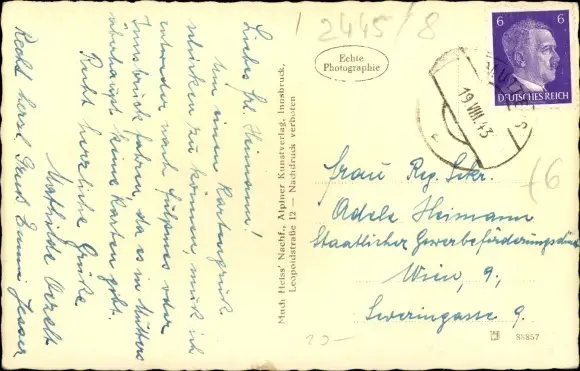 2445/8
Echte
Photographie
6 6
DEUTSCHES REICH
19.VIII.43
Liebes Frl. Heimann!
Um einen Kartengruß
schicken zu können, muß ich
entweder nach Fulpmes oder
Innsbruck fahren, da es in Mutters
überhaupt keine Karten gibt.
Recht herzliche Grüße
Mathilde
Recht herzl. Gruß Emmi
Much Heiss' Nachf., Alpiner Kunstverlag, Innsbruck,
Leopoldstraße 12 — Nachdruck verboten
Frau Reg. Sekr.
Adele Heimann
Staatlicher Gewerbeförderungsdienst
Wien, 9,
Severingasse 9.
(6
20-
88857